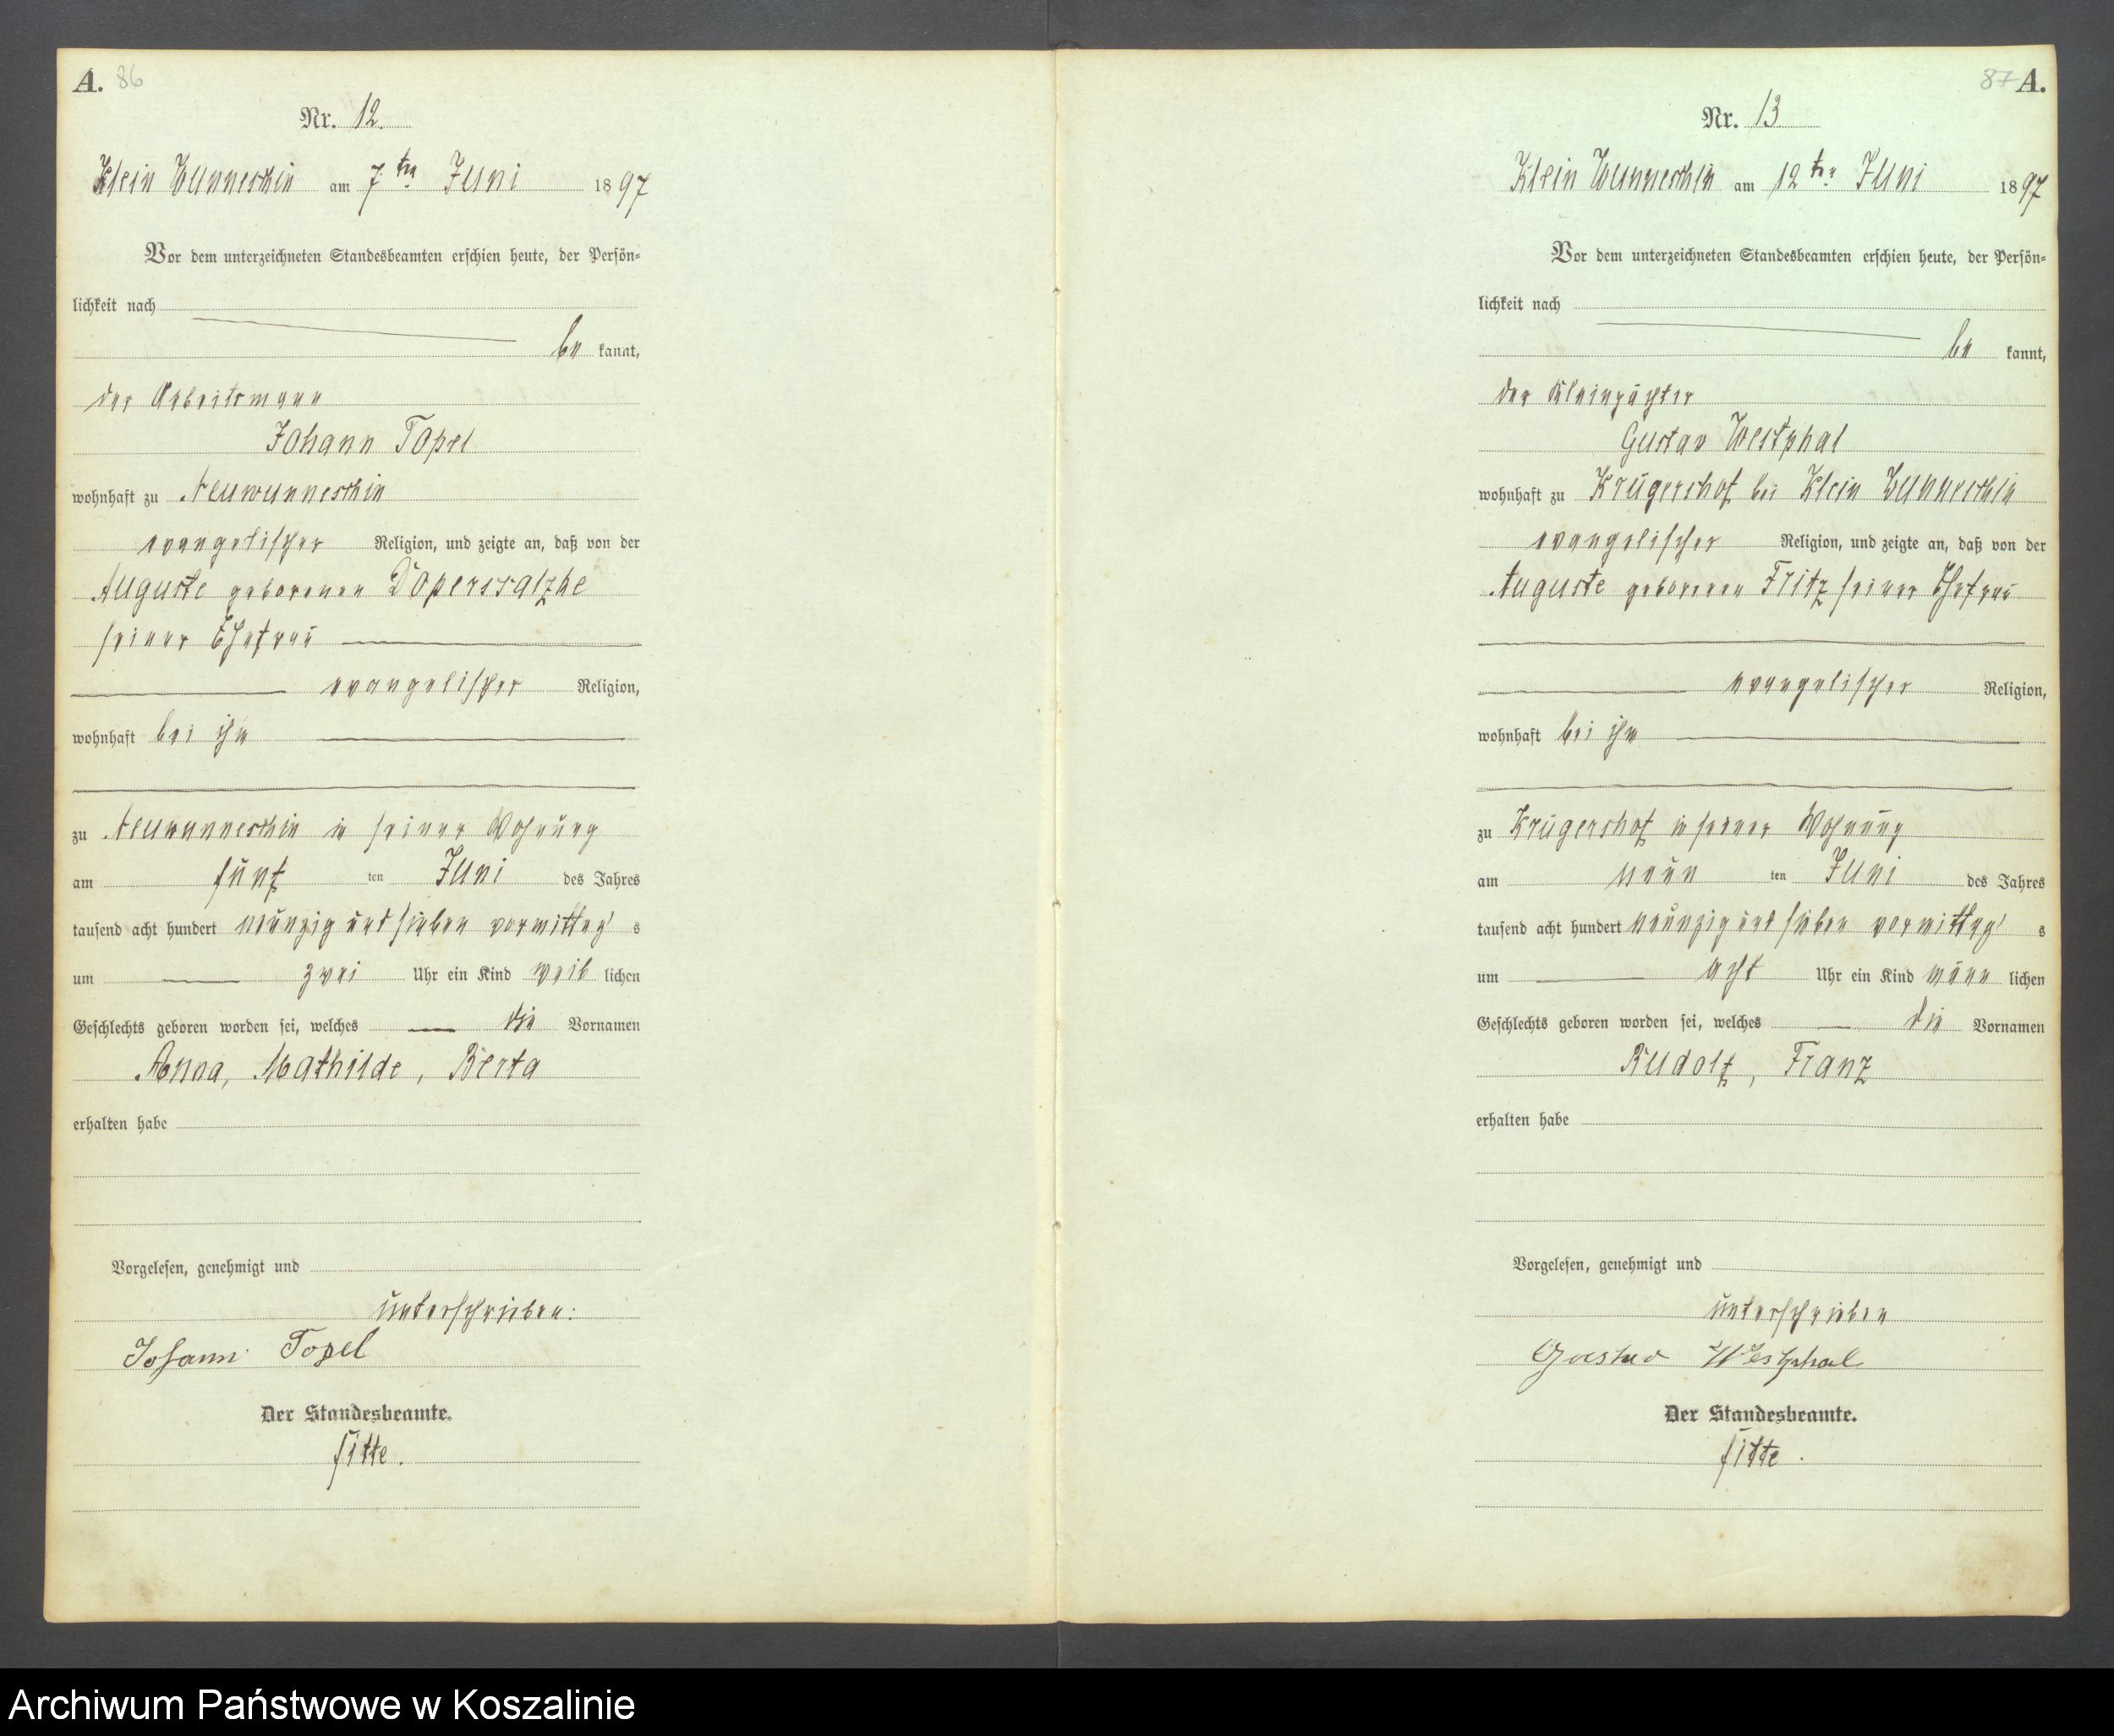 A. 86
Nr. 12.
Klein Wunneschin am 7ten Juni 1897
Vor dem unterzeichneten Standesbeamten erschien heute, der Persön-
lichkeit nach
be kannt,
der Arbeitsmann
Johann Topel
wohnhaft zu Neuwunneschin
evangelischer Religion, und zeigte an, daß von der
Auguste geborenen
seiner Ehefrau
evangelischer Religion,
wohnhaft bei ihm
zu Neuwunneschin in seiner Wohnung
am fünf ten Juni des Jahres
tausend acht hundert neunzig und sieben vormittag s
um zwei Uhr ein Kind weib lichen
Geschlechts geboren worden sei, welches die Vornamen
Anna, Mathilde, Berta
erhalten habe
Vorgelesen, genehmigt und
unterschrieben:
Johann Topel
Der Standesbeamte.
87 A.
Nr. 13
Klein Wunneschin am 12ten Juni 1897
Vor dem unterzeichneten Standesbeamten erschien heute, der Persön-
lichkeit nach
be kannt,
der Kleinpächter
Gustav Westphal
wohnhaft zu Krügershof bei Klein Wunneschin
evangelischer Religion, und zeigte an, daß von der
Auguste geborenen Fritz seiner Ehefrau
evangelischer Religion,
wohnhaft bei ihm
zu Krügershof in seiner Wohnung
am neun ten Juni des Jahres
tausend acht hundert neunzig und sieben vormittag s
um acht Uhr ein Kind männ lichen
Geschlechts geboren worden sei, welches die Vornamen
Rudolf, Franz
erhalten habe
Vorgelesen, genehmigt und
unterschrieben
Gustav Westphal
Der Standesbeamte.
Archiwum Państwowe w Koszalinie